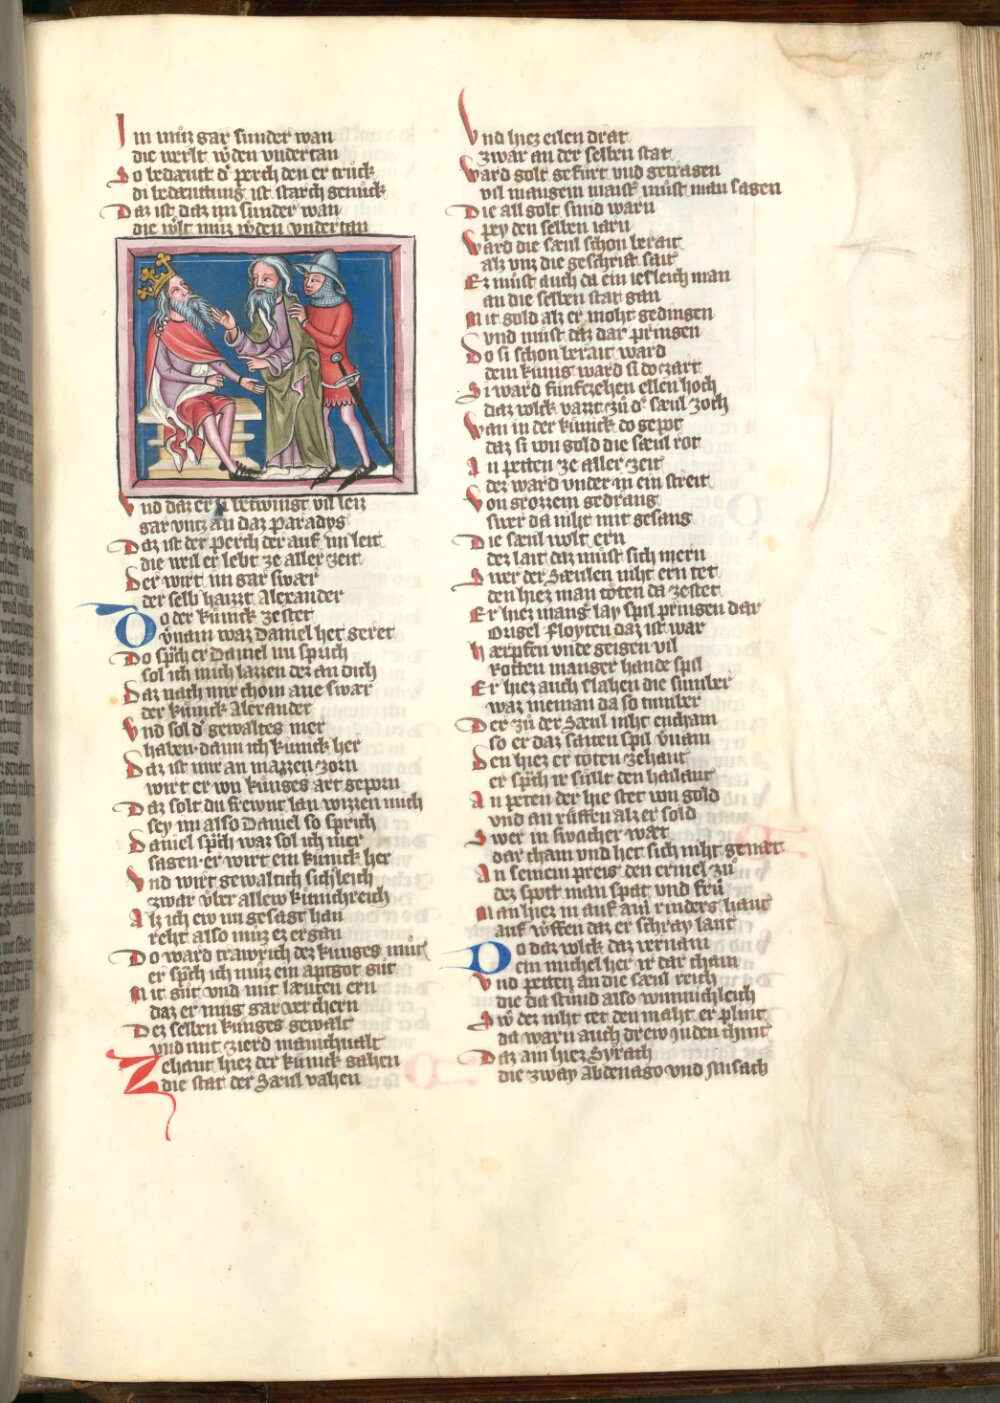 Im muͤz gar sunder wan
die werlt wͤden vndertan
So bedæutt dͤ perch den er truͤck
di bedæuttung ist starch genuͤck
Daz ist daz im sunder wan
die wͤlt muͤz wͤden vndertan
Vnd daz er si betwingt vil leiz
gar vntz an daz paradys
Daz ist der perch der auf im leit
die weil er lebt ze aller zeit
Der wirt im gar swær
der selb haizzt Alexander
Do der kuͤnick zestet
vͤnam waz Daniel het geret
Do spͣch er Daniel nu sprich
sol ich mich lazzen dez an dich
Daz nach mir chom ane swær
der kuͤnick Alexander
Vnd sol dͤ gewaltes mer
haben dann ich kuͤnick her
Daz ist mir an mazzen zorn
wirt er von kuͤnges art geporn
Daz solt du frewnt lan wizzen mich
sey im also Daniel so sprich
Daniel spͣch waz sol ich mer
sagen er wirt ein kuͤnick her
Vnd wirt gewaltich sichleich
zwar vͤber allew kuͤnichreich
Alz ich ew nu gesagt han
reht also muͤz ez ergan
Do ward trawrich dez kuͤnges muͤt
er spͣch ich muͤz ein aptgot guͤt
Mit guͤt und mit læuten ern
daz er mug gar verchern
Dez selben kuͤnges gewalt
vnd mit zierd manichualt
Zehant hiez der kuͤnick gahen
die stat der Sæul vahen
Vnd hiez eilen drat
zwar an der selben stat
Ward golt gefuͤrt vnd getragen
vil mangem maistͤ muͤst man sagen
Die all golt smid warn
pey den selben iarn
Ward die sæul schon berait
alz vnz die geschrift sait
Ez muͤst auch da ein iesleich man
an die selben stat gan
Mit gold alz er moht gedingen
vnd muͤst daz dar pringen
Do si schon berait ward
dem kuͤnig ward si do zart
Si ward fuͤnfzehen ellen hoch
daz volck vazzt zuͤ dͤ sæul zoch
Wan in der kuͤnick do gepot
daz si von gold die sæul rot
An petten ze aller zeit
dez ward vnder in ein streit
Von grozzem gedrang
swer da niht mit gesang
Die sæul wolt ern
dez lait daz muͤst sich mern
Swer der Sæulen niht ern tet
den hiez man toͤten da zestet
Er hiez mang lay spil pringen dar
Orgel floyten daz ist war
Hærpfen vnde geigen vil
Rotten manger hande spil
Er hiez auch slahen die sumber
waz nieman da so tumber
Der zuͤ der Sæul niht encham
so er daz saiten spil vͤnam
Den hiez er toͤten zehant
er spͣch ir suͤllt den hailant
An peten der hie stet von gold
vnd an ruͤffen alz er sold
Swer in swacher wæt
dar cham vnd het sich niht genæt
An seinem preis den ermel zuͤ
dez spott man spat vnd fruͤ
Man hiez in auf ain rinders haut
auf wͤffen daz er schray laut
Do daz volck daz vernam
ein michel her ir dar cham
Vnd petten an die sæul reich
die da stuͤnd also wunnichleich
Swͤ dez niht tet den maht er plint
da warn auch drew juden chint
Daz ain hiez Syrach
die zway Abdenago vnd Misach